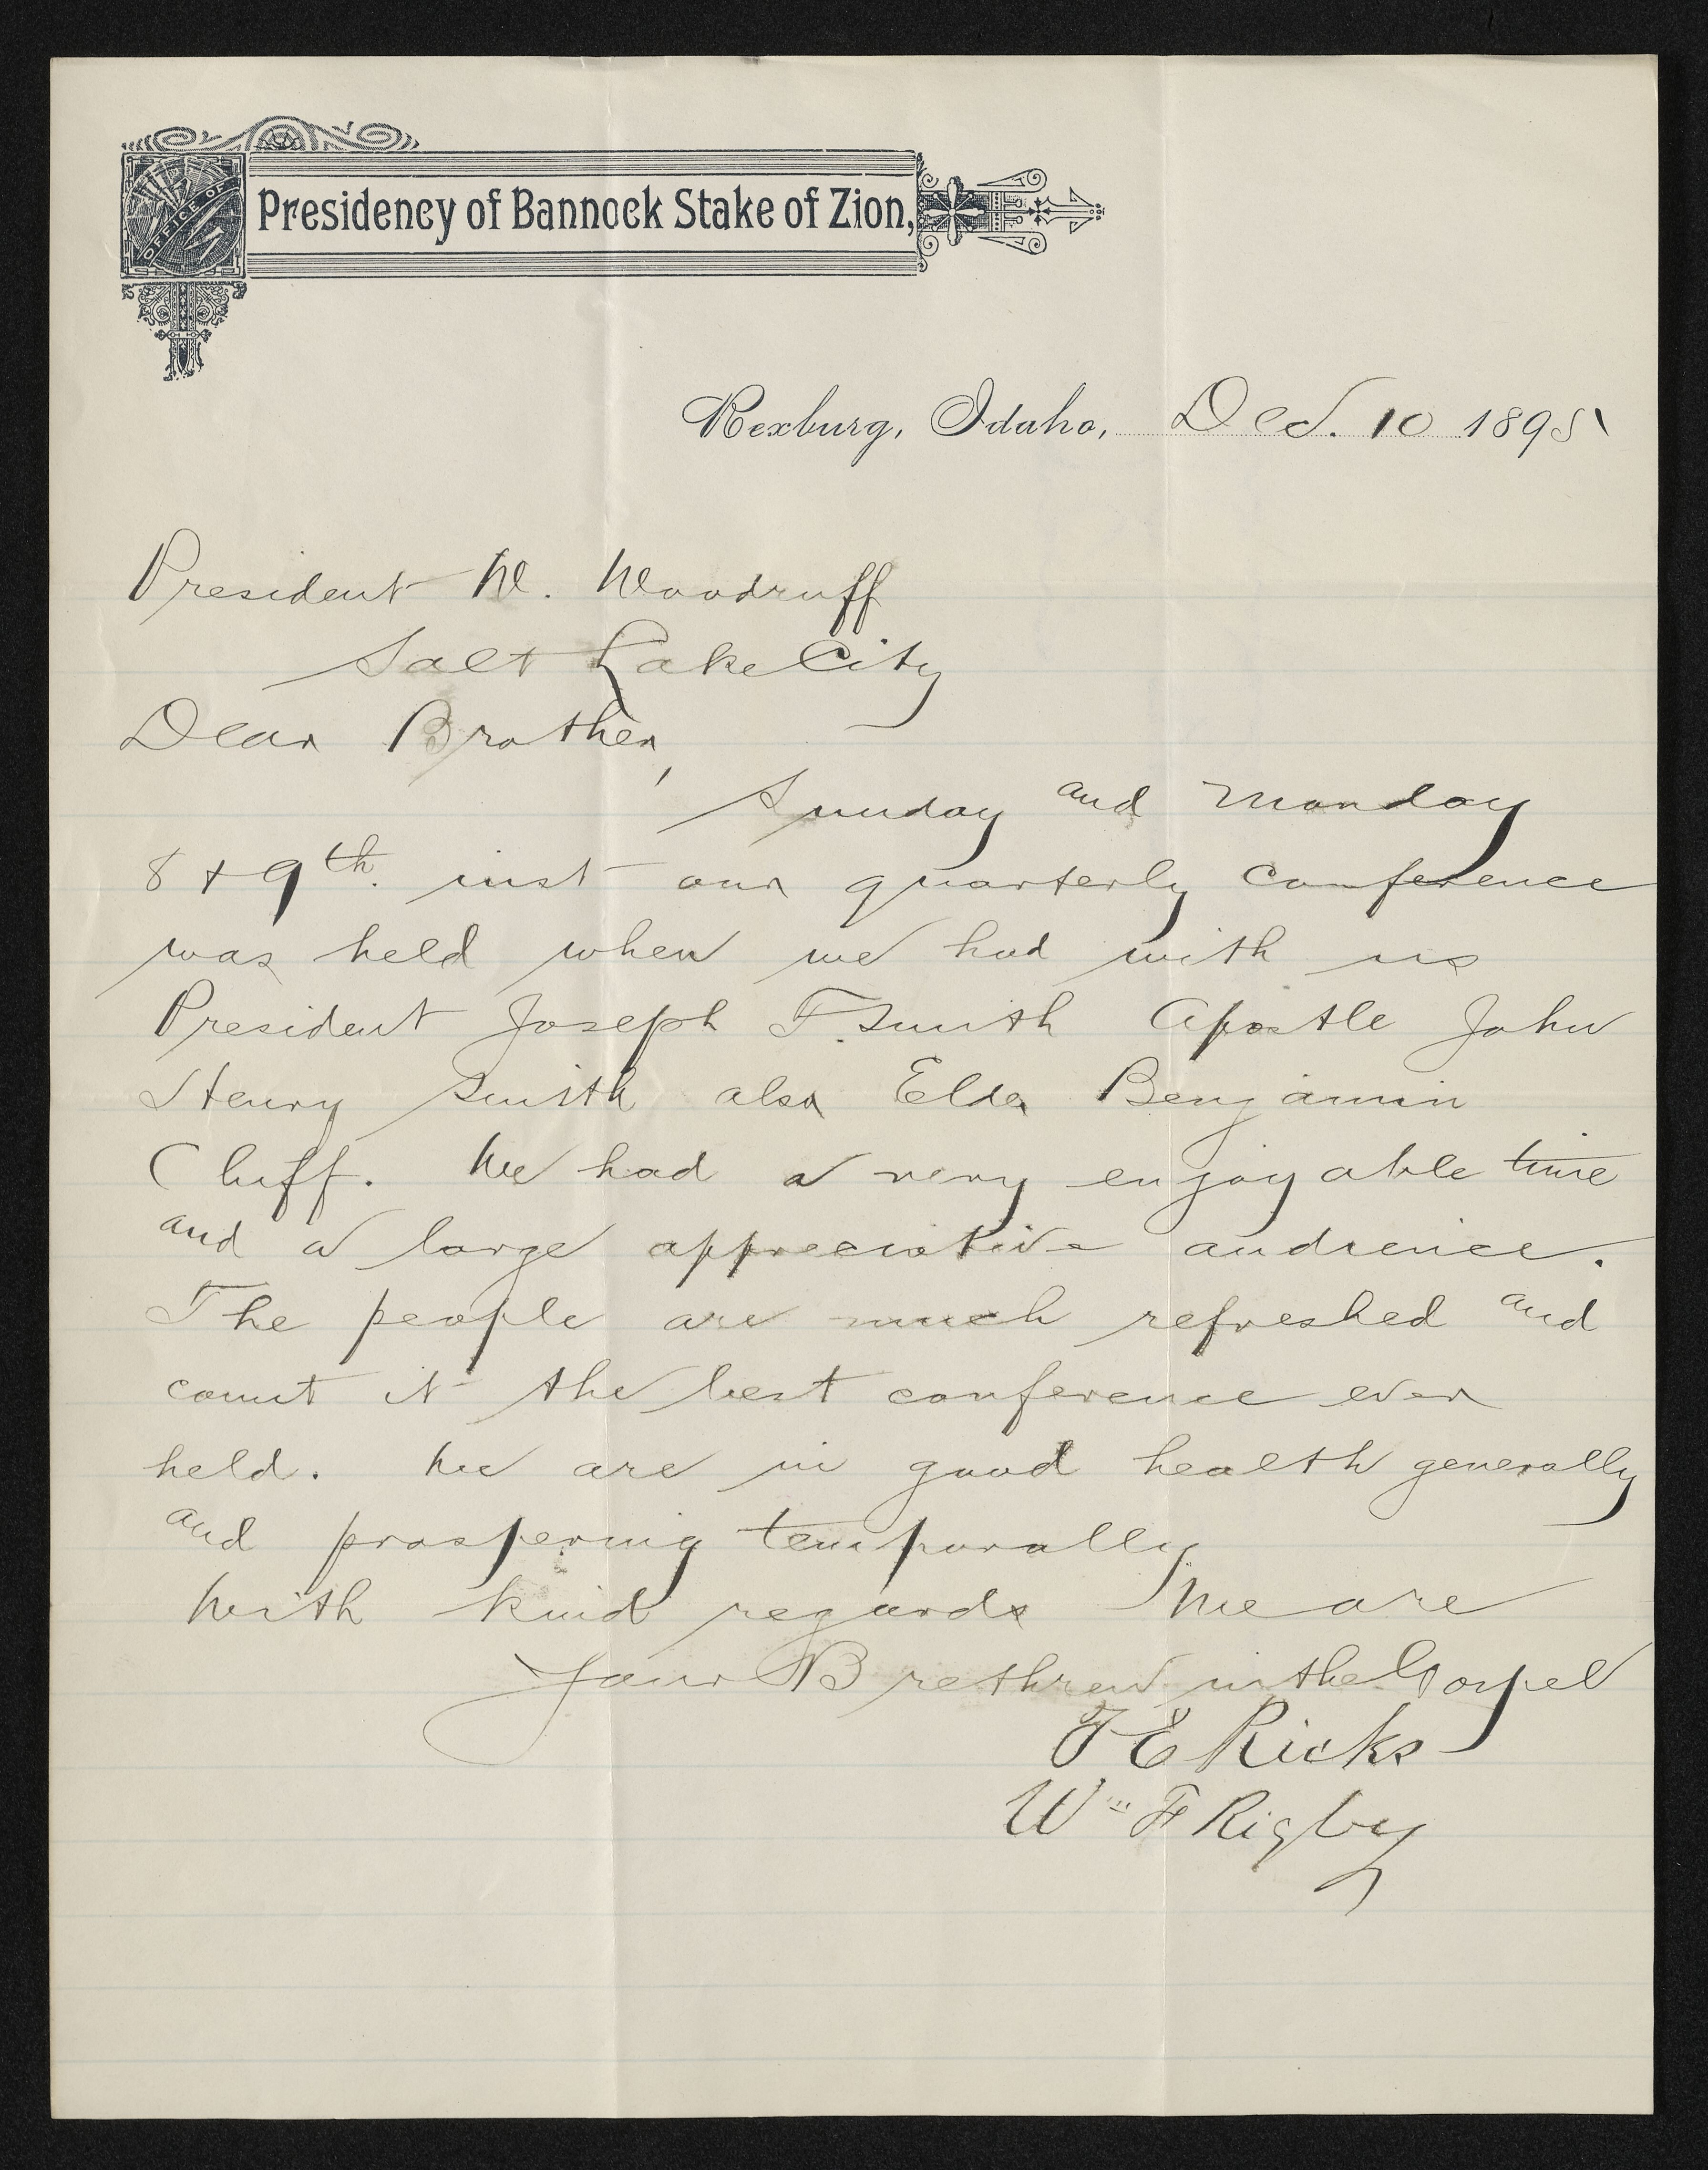 OFFICE OF
Presidency of Bannock Stake of Zion,
Rexburg, Idaho, Dec. 10 1895
President W. Woodruff
Salt Lake City
Dear Brother,
Sunday and Monday
8 & 9th. inst our quarterly conference
was held when we had with us
President Joseph F. Smith Apostle John
Henry Smith also Elder Benjamin
Cluff. We had a very enjoyable time
and a large appreciative audience.
The people are much refreshed and
count it the best conference ever
held. We are in good health generally
and prospering temporally
With kind regards We are
Your Brethren in the Gospel
T E Ricks
Wm F Rigby